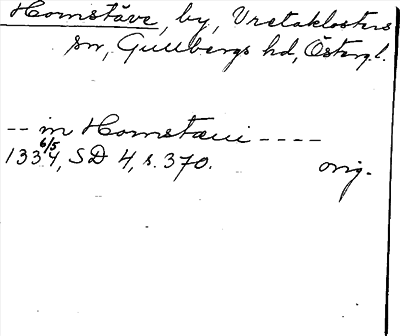 Homstäve, by, Vretaklosters
sn, Gullbergs hd, Östergl.
-- in Homstæui ----
1334 6/5, SD 4, s. 370. orig.